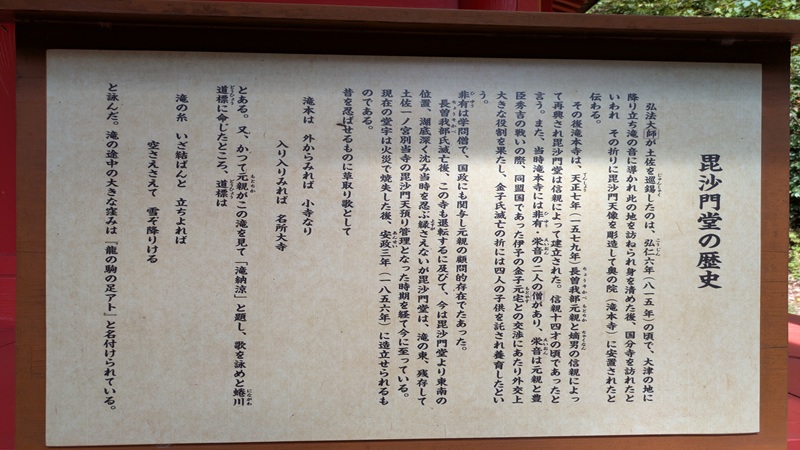 毘沙門堂の歴史
弘法大師が土佐を巡錫したのは、弘仁六年（八一五年）の頃で、大津の地に
降り立ち滝の音に導かれ此の地を訪ねられ身を清めた後、国分寺を訪れたと
いわれ その折りに毘沙門天像を彫造して奥の院（滝本寺）に安置されたと
伝わる。
その後滝本寺は、天正七年（一五七九年）長曽我部元親と嫡男の信親によっ
て再興され毘沙門堂は信親によって建立された。信親十四才の頃であったと
言う。また、当時滝本寺には非有・栄音の二人の僧があり、栄音は元親と豊
臣秀吉の戦いの際、同盟国であった伊予の金子元宅との交渉にあたり外交上
大きな役割を果たし、金子氏滅亡の折には四人の子供を託され養育したとい
う。
非有は学問僧で、国政にも関与し元親の顧問的存在であった。
長曽我部氏滅亡後、この寺も退転するに及びて、今は毘沙門堂より東南の
位置、湖底深く沈み当時を忍ぶ縁さえないが毘沙門堂は、滝の東、残存して
土佐一ノ宮別当寺の毘沙門天預り管理となった時期を経て今に至っている。
現在の堂宇は火災で焼失した後、安政三年（一八五六年）に造立せられるも
のである。
昔を忍ばせるものに草取り歌として
滝本は 外からみれば 小寺なり
入り入りみれば 名所大寺
とある。又、かつて元親がこの滝を見て「滝納涼」と題し、歌を詠めと蜷川
道標に命じたところ、道標は
滝の糸 いざ結ばんと 立ちよれば
空さえさえて 雪ぞ降りける
と詠んだ。滝の途中の大きな窪みは「龍の駒の足アト」と名付けられている。